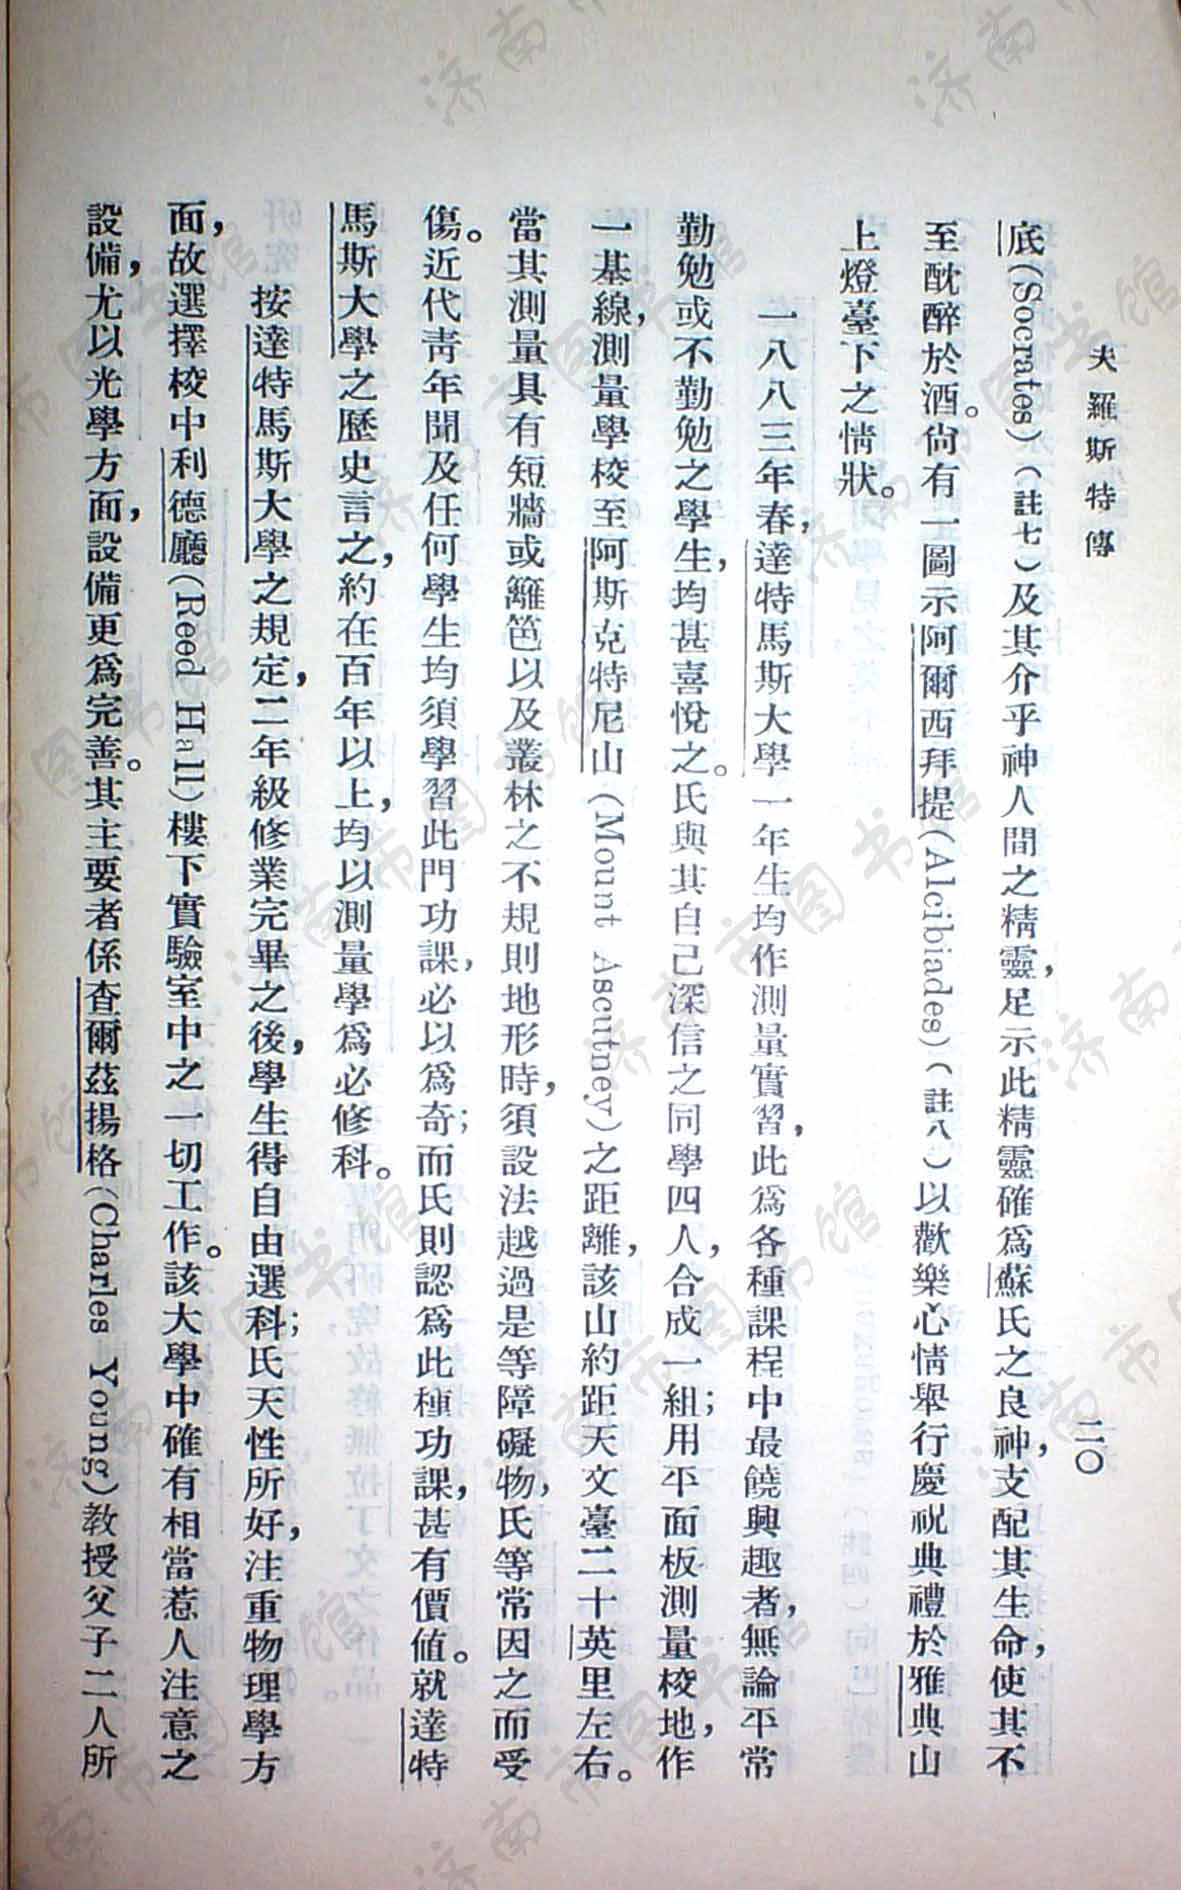 夫羅斯特傳
二〇
底(Socrates)(註七)及其介乎神人間之精靈,足示此精靈確爲蘇氏之良神,支配其生命,使其不
至酖醉於酒。尙有一圖示阿爾西拜提(Alcibiades)(註八)以歡樂心情舉行慶祝典禮於雅典山
上燈臺下之情狀。
一八八三年春,達特馬斯大學一年生均作測量實習,此爲各種課程中最饒興趣者,無論平常
勤勉或不勤勉之學生,均甚喜悅之。氏與其自己深信之同學四人,合成一組;用平面板測量校地,作
一基線,測量學校至阿斯克特尼山(Mount Ascutney)之距離,該山約距天文臺二十英里左右。
當其測量具有短牆或籬笆以及叢林之不規則地形時,須設法越過是等障礙物,氏等常因之而受
傷。近代靑年聞及任何學生均須學習此門功課,必以爲奇;而氏則認爲此種功課,甚有價値。就達特
馬斯大學之歷史言之,約在百年以上,均以測量學爲必修科。
按達特馬斯大學之規定,二年級修業完畢之後,學生得自由選科;氏天性所好,注重物理學方
面,故選擇校中利德廳(Reed Hall)樓下實驗室中之一切工作。該大學中確有相當惹人注意之
設備,尤以光學方面,設備更爲完善。其主要者係查爾茲揚格(Charles Young)教授父子二人所
济南市图书馆